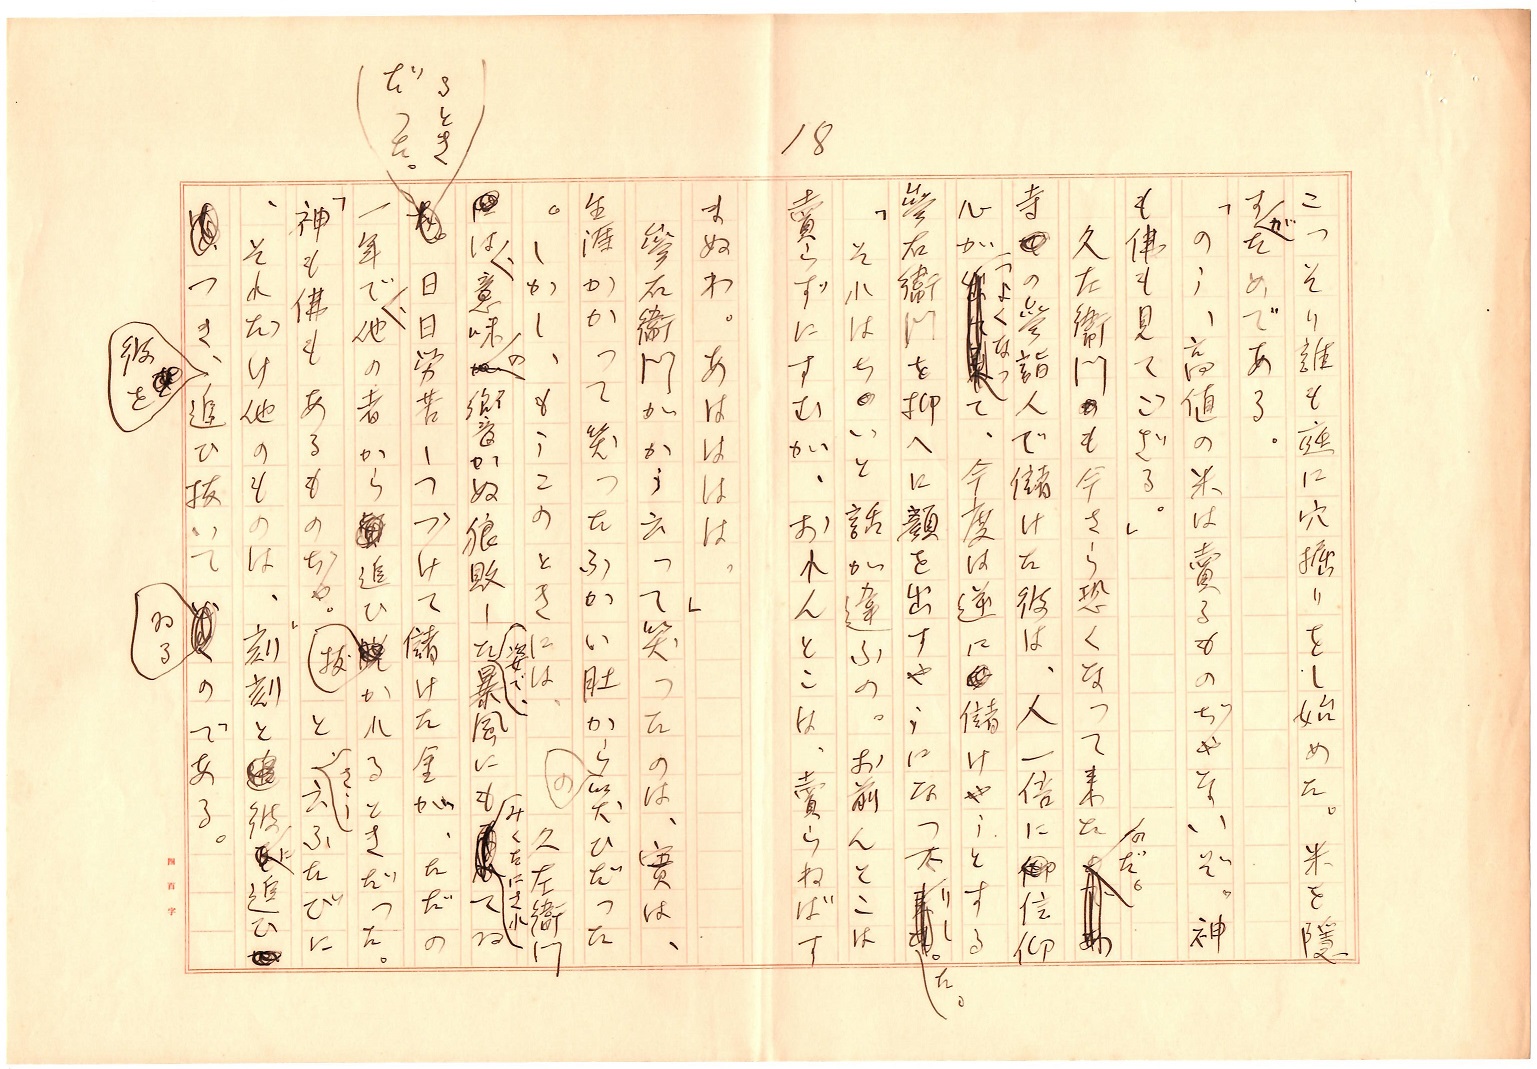 18
こつそり誰も庭に穴掘りをし始めた。米を隠
すがためである。
「のう、高値の米は賣るものぢやないぞ。神
も佛も見てござる。」
久左衞門も今さら恐くなつて来たのだ。
寺の參詣人で儲けた彼は、人一倍に信仰
心がつよくなつて、今度は逆に儲けやうとする
參右衞門を抑へに顔を出すやうになつたりした。
「それはちつと話が違ふの。お前んとこは
賣らずにすむが、おれんとこは、賣らねばす
まぬわ。あはははは。」
參右衞門がかう云つて笑つたのは、實は、
生涯かかつて笑つたふかい肚から笑ひだつた
。しかし、もうこのときには、の久左衞門
は、意味の響かぬ狼敗した姿で、暴風にもみくたにされてゐ
るときだつた。
日日労苦しつづけて儲けた金が、ただの
一年で、他の者から追ひ抜かれるときだつた。
「神も佛もあるものぢや。」とさう云ふたびに
、それだけ他のものは、刻刻と彼に追ひ
つき、彼を追ひ抜いてゐるのである。
四百字